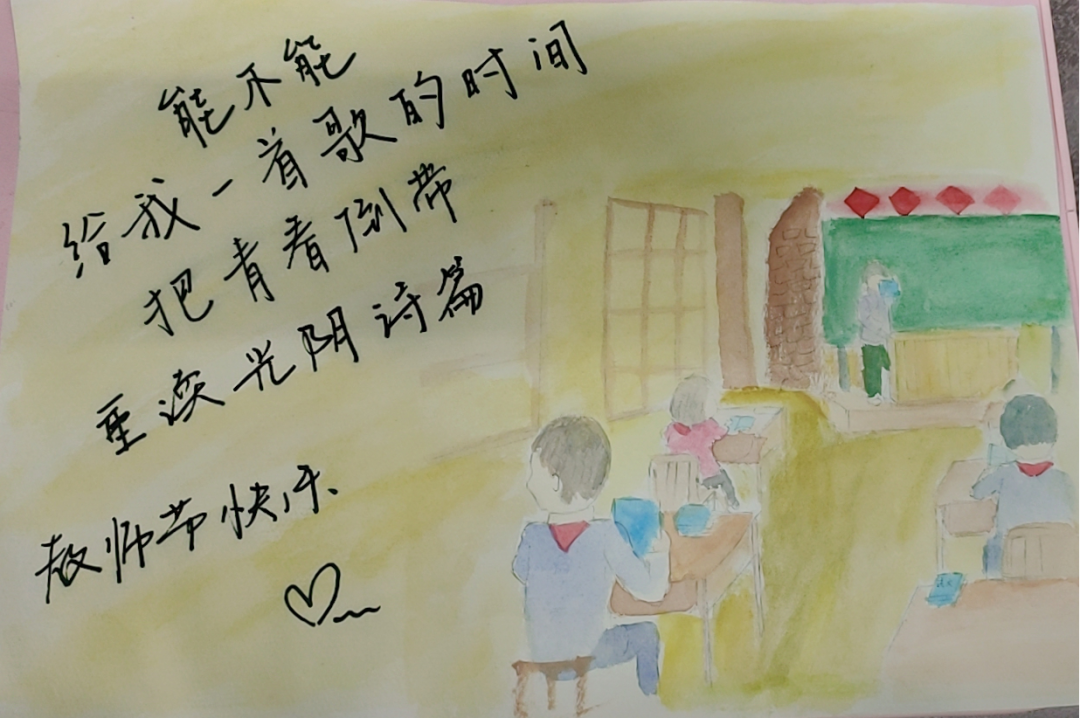 能不能
给我一首歌的时间
把青春倒带
重读光阴诗篇
教师节快乐